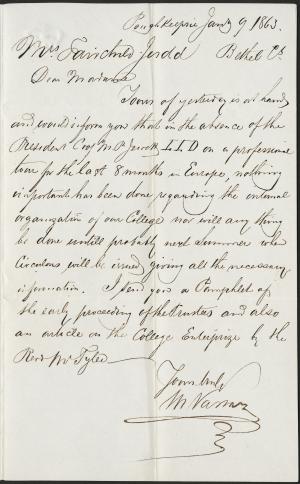 Poughkeepsie Jany 9 1863.
Mrs Fairchild Judd Bethel Ct.
Dear Madam
Yours of yesterday is at hand
and would inform you that in the absence of the
President Prof M. P. Jewett L.L.D on a professional
tour for the last 8 months in Europe, nothing
important has been done regarding the internal
organization of our College nor will any thing
be done untill probably next Summer when
Circulars will be issued giving all the necessary
information. I send you a Pamphlet of
the early proceeding of the trustees and also
an article on the College Enterprize by the
Revd Mr Tyler
Yours truly
M Vassar